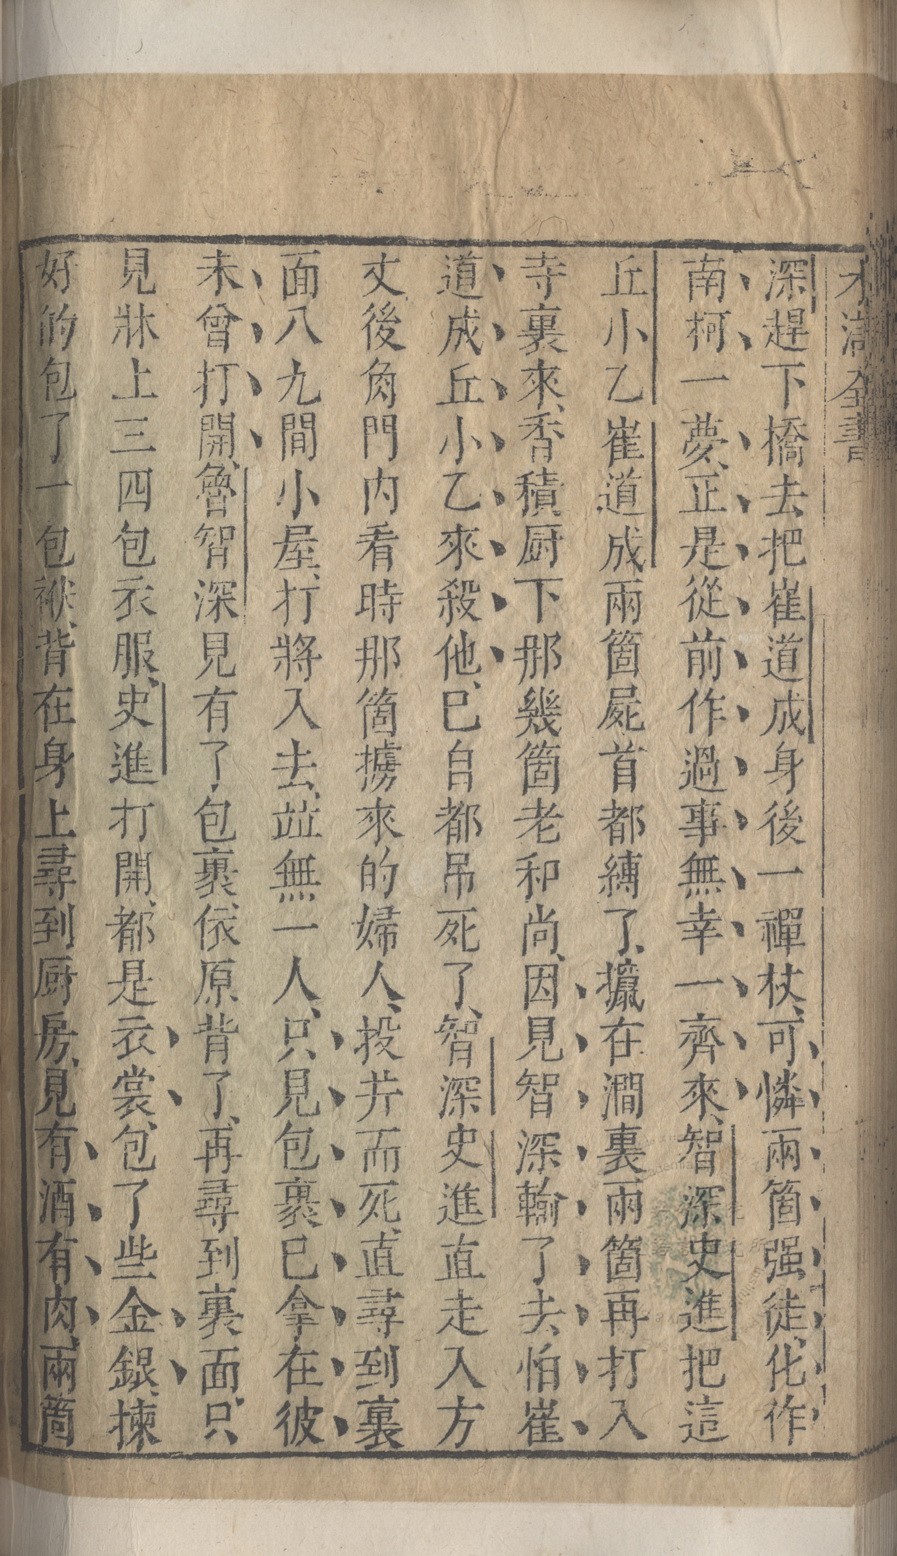 水滸全書
深趕下橋去把崔道成身後一禪杖、可憐兩箇强徒、化作
南柯一夢、正是從前作過事無幸一齊來、智深史進把這
丘小乙崔道成兩箇屍首都縛了、攛在澗裏兩箇再打入
寺裏來、香積厨下那幾箇老和尚、因見智深輸了去、怕崔
道成丘小乙來殺他、已自都吊死了、智深史進直走入方
丈後角門內看時那箇擄來的婦人、投井而死、直尋到裏
面八九間小屋、打將入去、並無一人、只見包裹已拿在彼
未曾打開、魯智深見有了包裹、依原背了、再尋到裏面、只
見牀上三四包衣服、史進打開、都是衣裳、包了些金銀、揀
好的包了一包袱、背在身上尋到厨房、見有酒有肉、兩箇